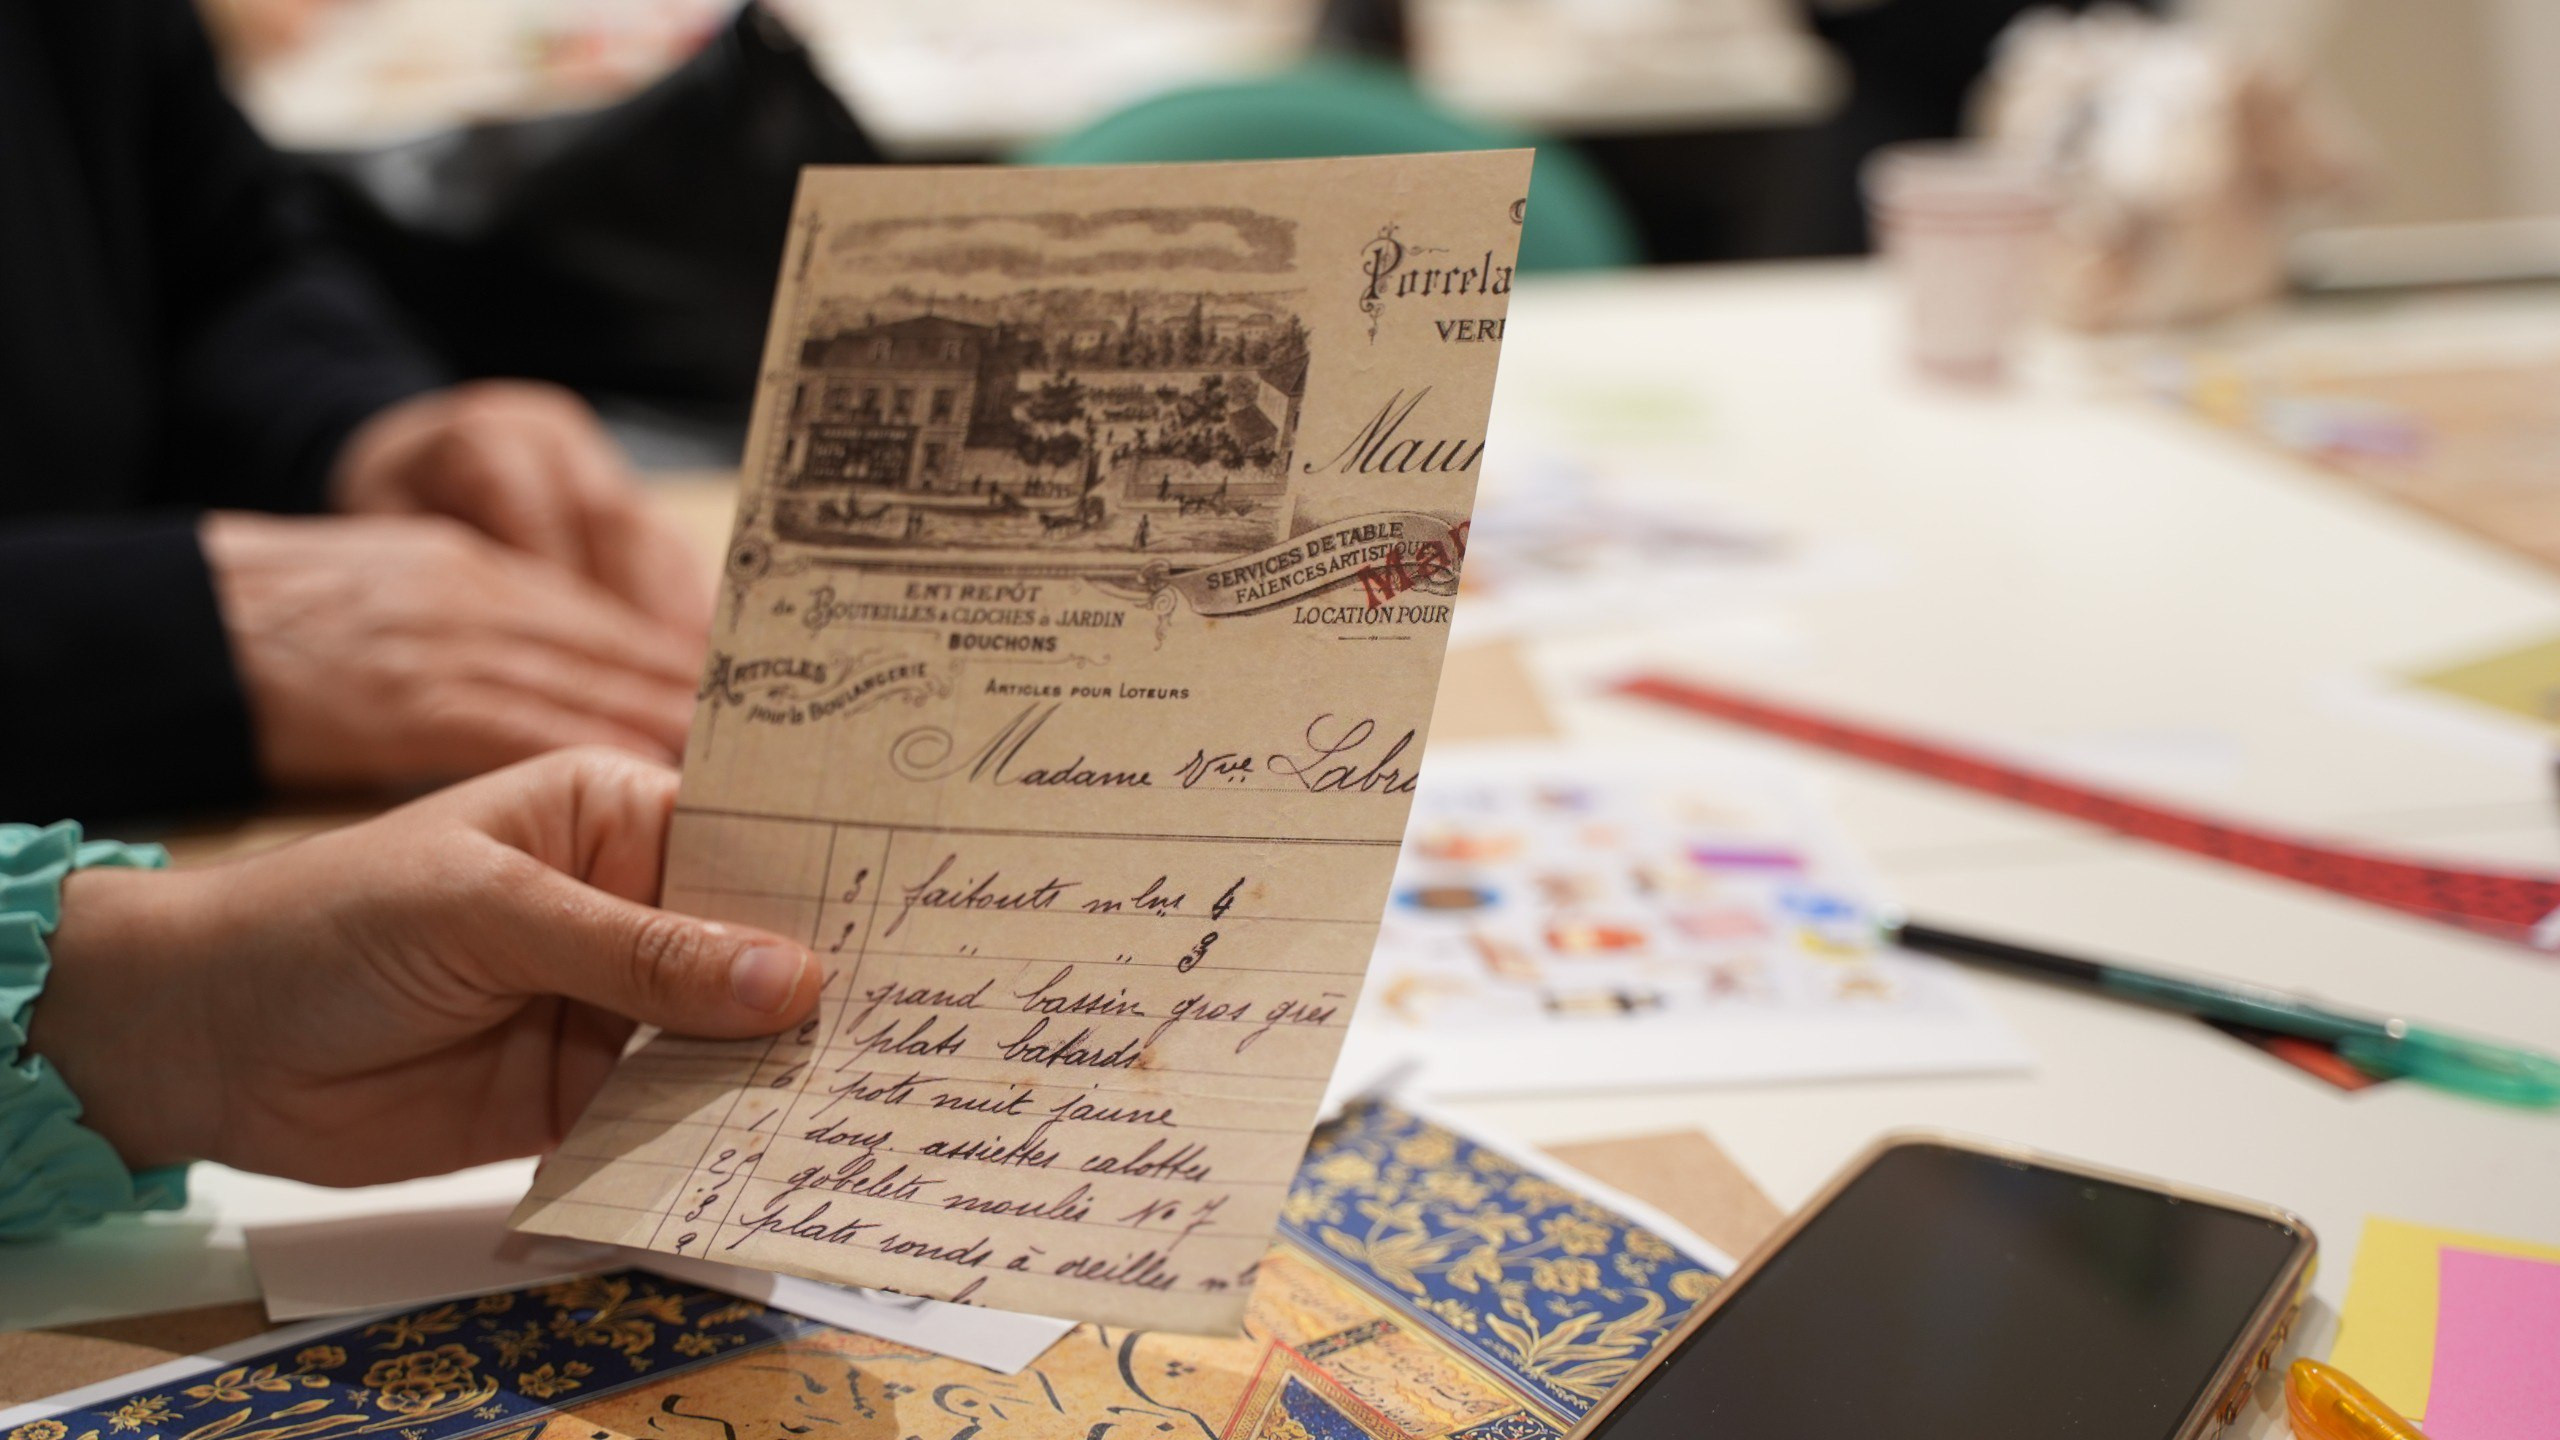 Porcela
VERR
Maur
SERVICES DE TABLE
FAÏENCES ARTISTIQUE
Mar
LOCATION POUR
ENTREPÔT
de BOUTEILLES & CLOCHES à JARDIN
BOUCHONS
ARTICLES
pour la BOULANGERIE
ARTICLES POUR LOTEURS
Madame Vve Labr
3 faitouts mlns 4
3 " " 3
1 grand bassin gros grès
2 plats batards
6 pots nuit jaune
1 douz. assiettes calottes
25 gobelets moulés No 7
3 plats ronds à oreilles
2